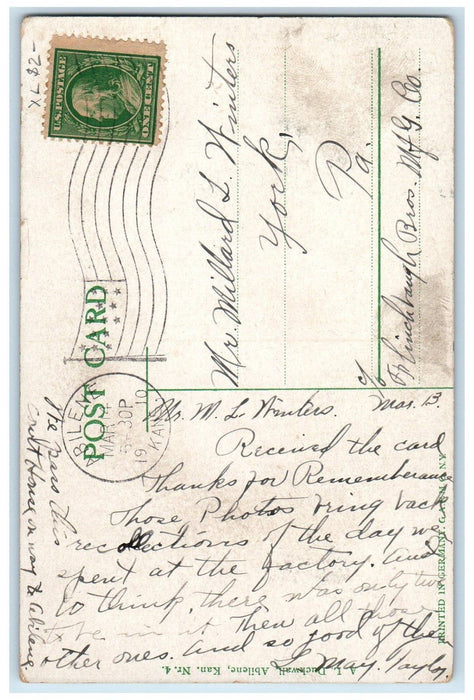 -287X
U.S. POSTAGE
ONE CENT
POST CARD
ABILENE
MAR 14
30P
1910
KANS.
Mr. Millard L. Winters
York,
Pa.
c/o Flinchbaugh Bros. Mf'G. Co.
Mr. M. L. Winters. Mar. 13.
Received the card
Thanks for Rememberance
Those Photos bring back
recollections of the day we
spent at the factory. And
to think, there was only two
be in it then all those
other ones. And so good of the
L. May. Taylor.
We pass this
Court House on way to Abilene
A. L. Duckwall, Abilene, Kan. Nr. 4.
PRINTED IN GERMANY.